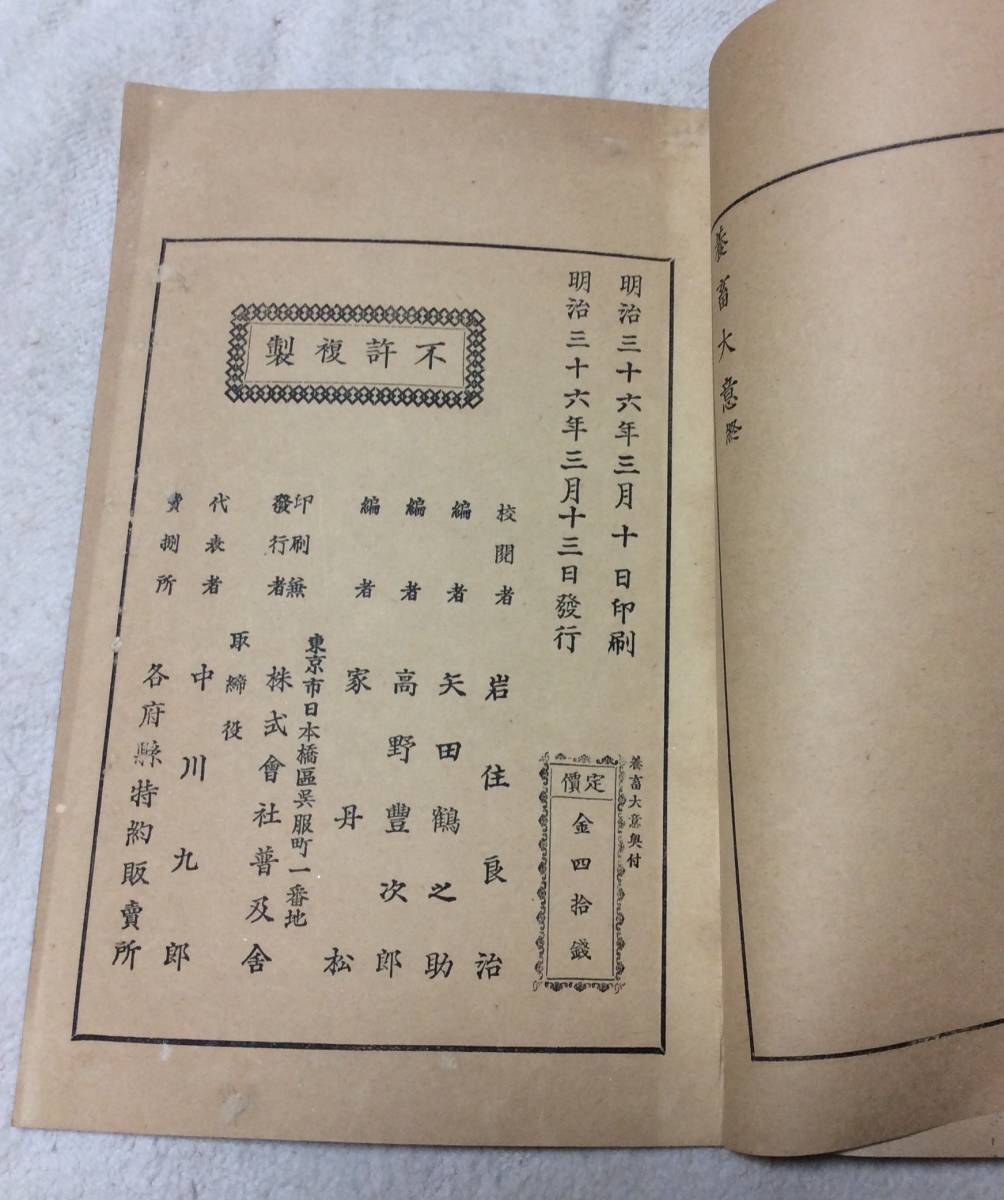 養畜大意終
明治三十六年三月十日印刷
明治三十六年三月十三日發行
養畜大意奥付
定價
金四拾錢
不許複製
校閲者 岩住良治
編者 矢田鶴之助
編者 高野豐次郎
編者 家丹松
東京市日本橋區呉服町一番地
印刷兼
發行者 株式會社普及舍
取締役
代表者 中川九郎
賣捌所 各府縣特約販賣所